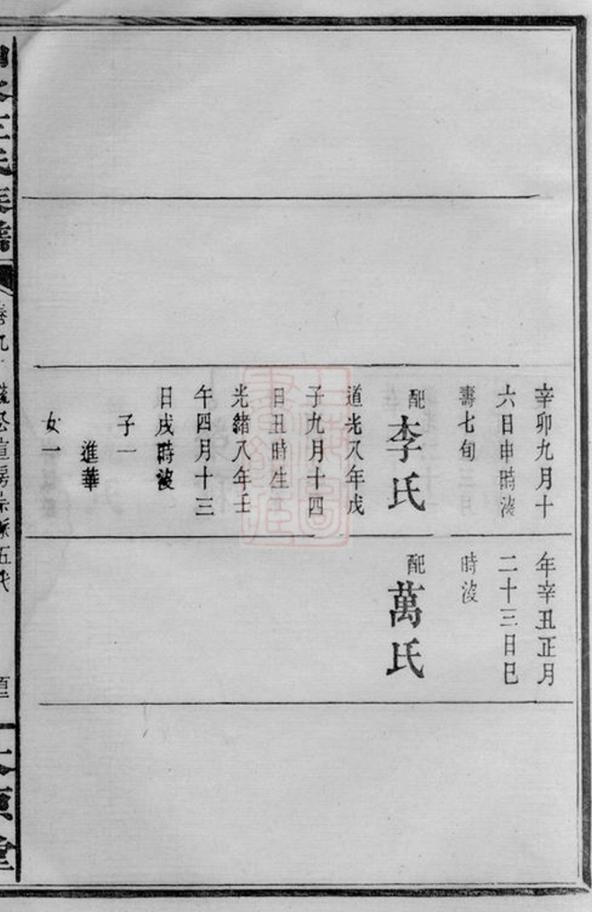 辛卯九月十
六日申時沒
壽七旬
配
李氏
道光八年戊
子九月十四
日丑時生
光緒八年壬
午四月十三
日戌時沒
子一
進華
女一
年辛丑正月
二十三日巳
時沒
配
萬氏
氏族譜